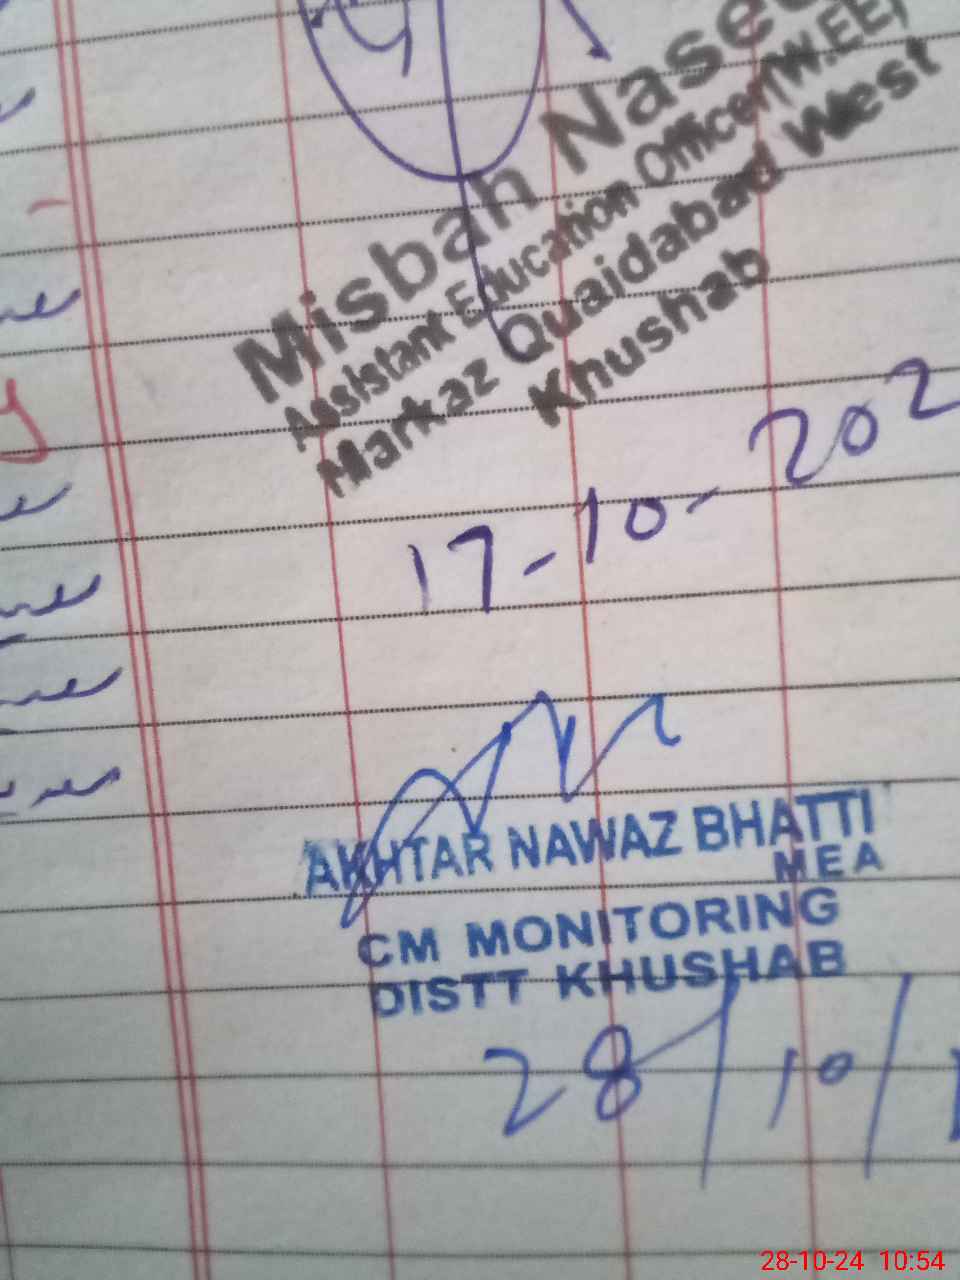 Misbah Nase
Assistant Education Officer(W.EE)
Markaz Quaidabad West
Khushab
17-10-202
AKHTAR NAWAZ BHATTI
MEA
CM MONITORING
DISTT KHUSHAB
28/10/
28-10-24 10:54